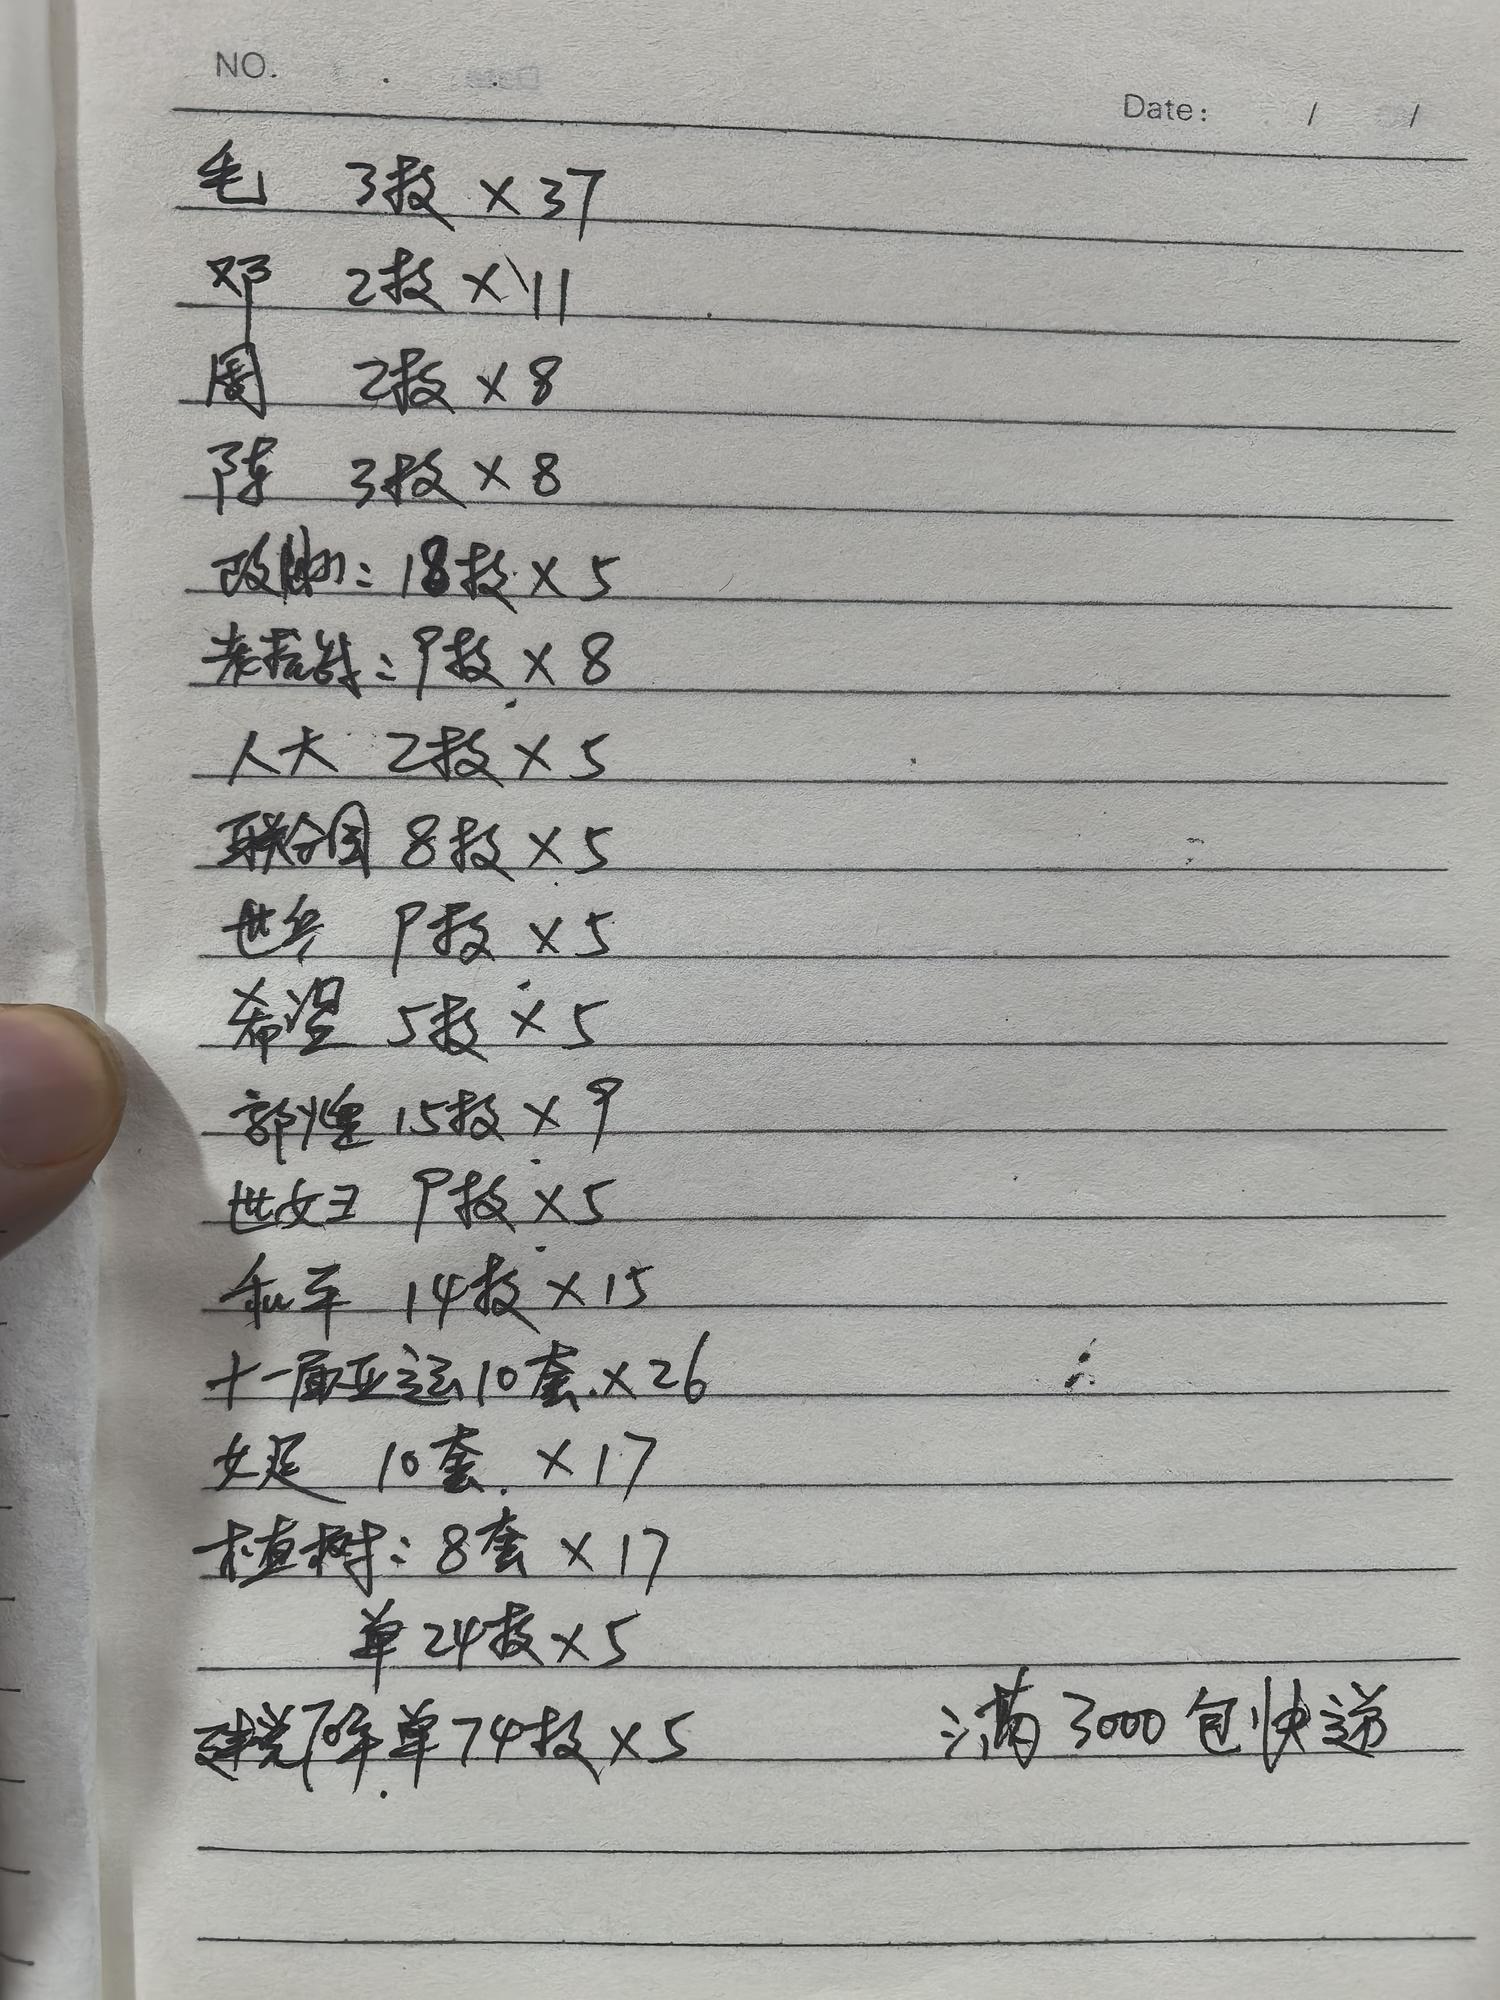 NO.
Date: / /
毛 3枚 × 37
邓 2枚 × 11
周 2枚 × 8
陈 3枚 × 8
18枚 × 5
老精制: 9枚 × 8
人大 2枚 × 5
联合国 8枚 × 5
世乒 9枚 × 5
希望 5枚 × 5
郭煌 15枚 × 9
世妇 9枚 × 5
和平 14枚 × 15
十一届亚运 10套 × 26
女足 10套 × 17
植树: 8套 × 17
单 24枚 × 5
建党70年 单 74枚 × 5
满 3000 包快递